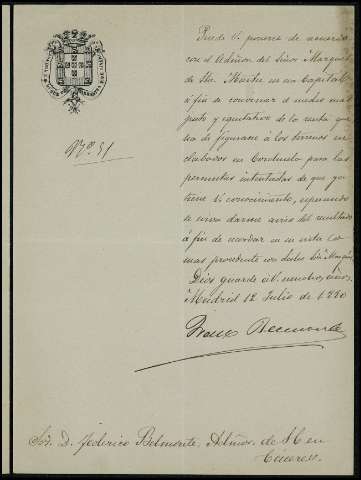 Nº. 51
Puede V. ponerse de acuerdo
con el Admor. del Señor Marqués
de en esa Capital
á fin de convenir el medio mas
justo y equitativo de la renta que
sea de figurarse á los terrenos en-
clabados en para las
permutas intentadas de que ya
tiene V. conocimiento, esperando
se sirva darme aviso del resultado
á fin de acordar en su vista lo
mas procedente con dicho Sor. Marqués.
Dios guarde á V. muchos años.
Madrid 12 Julio de 1880
Sor. D. Federico Belmonte, Admor. de M en
Cáceres.